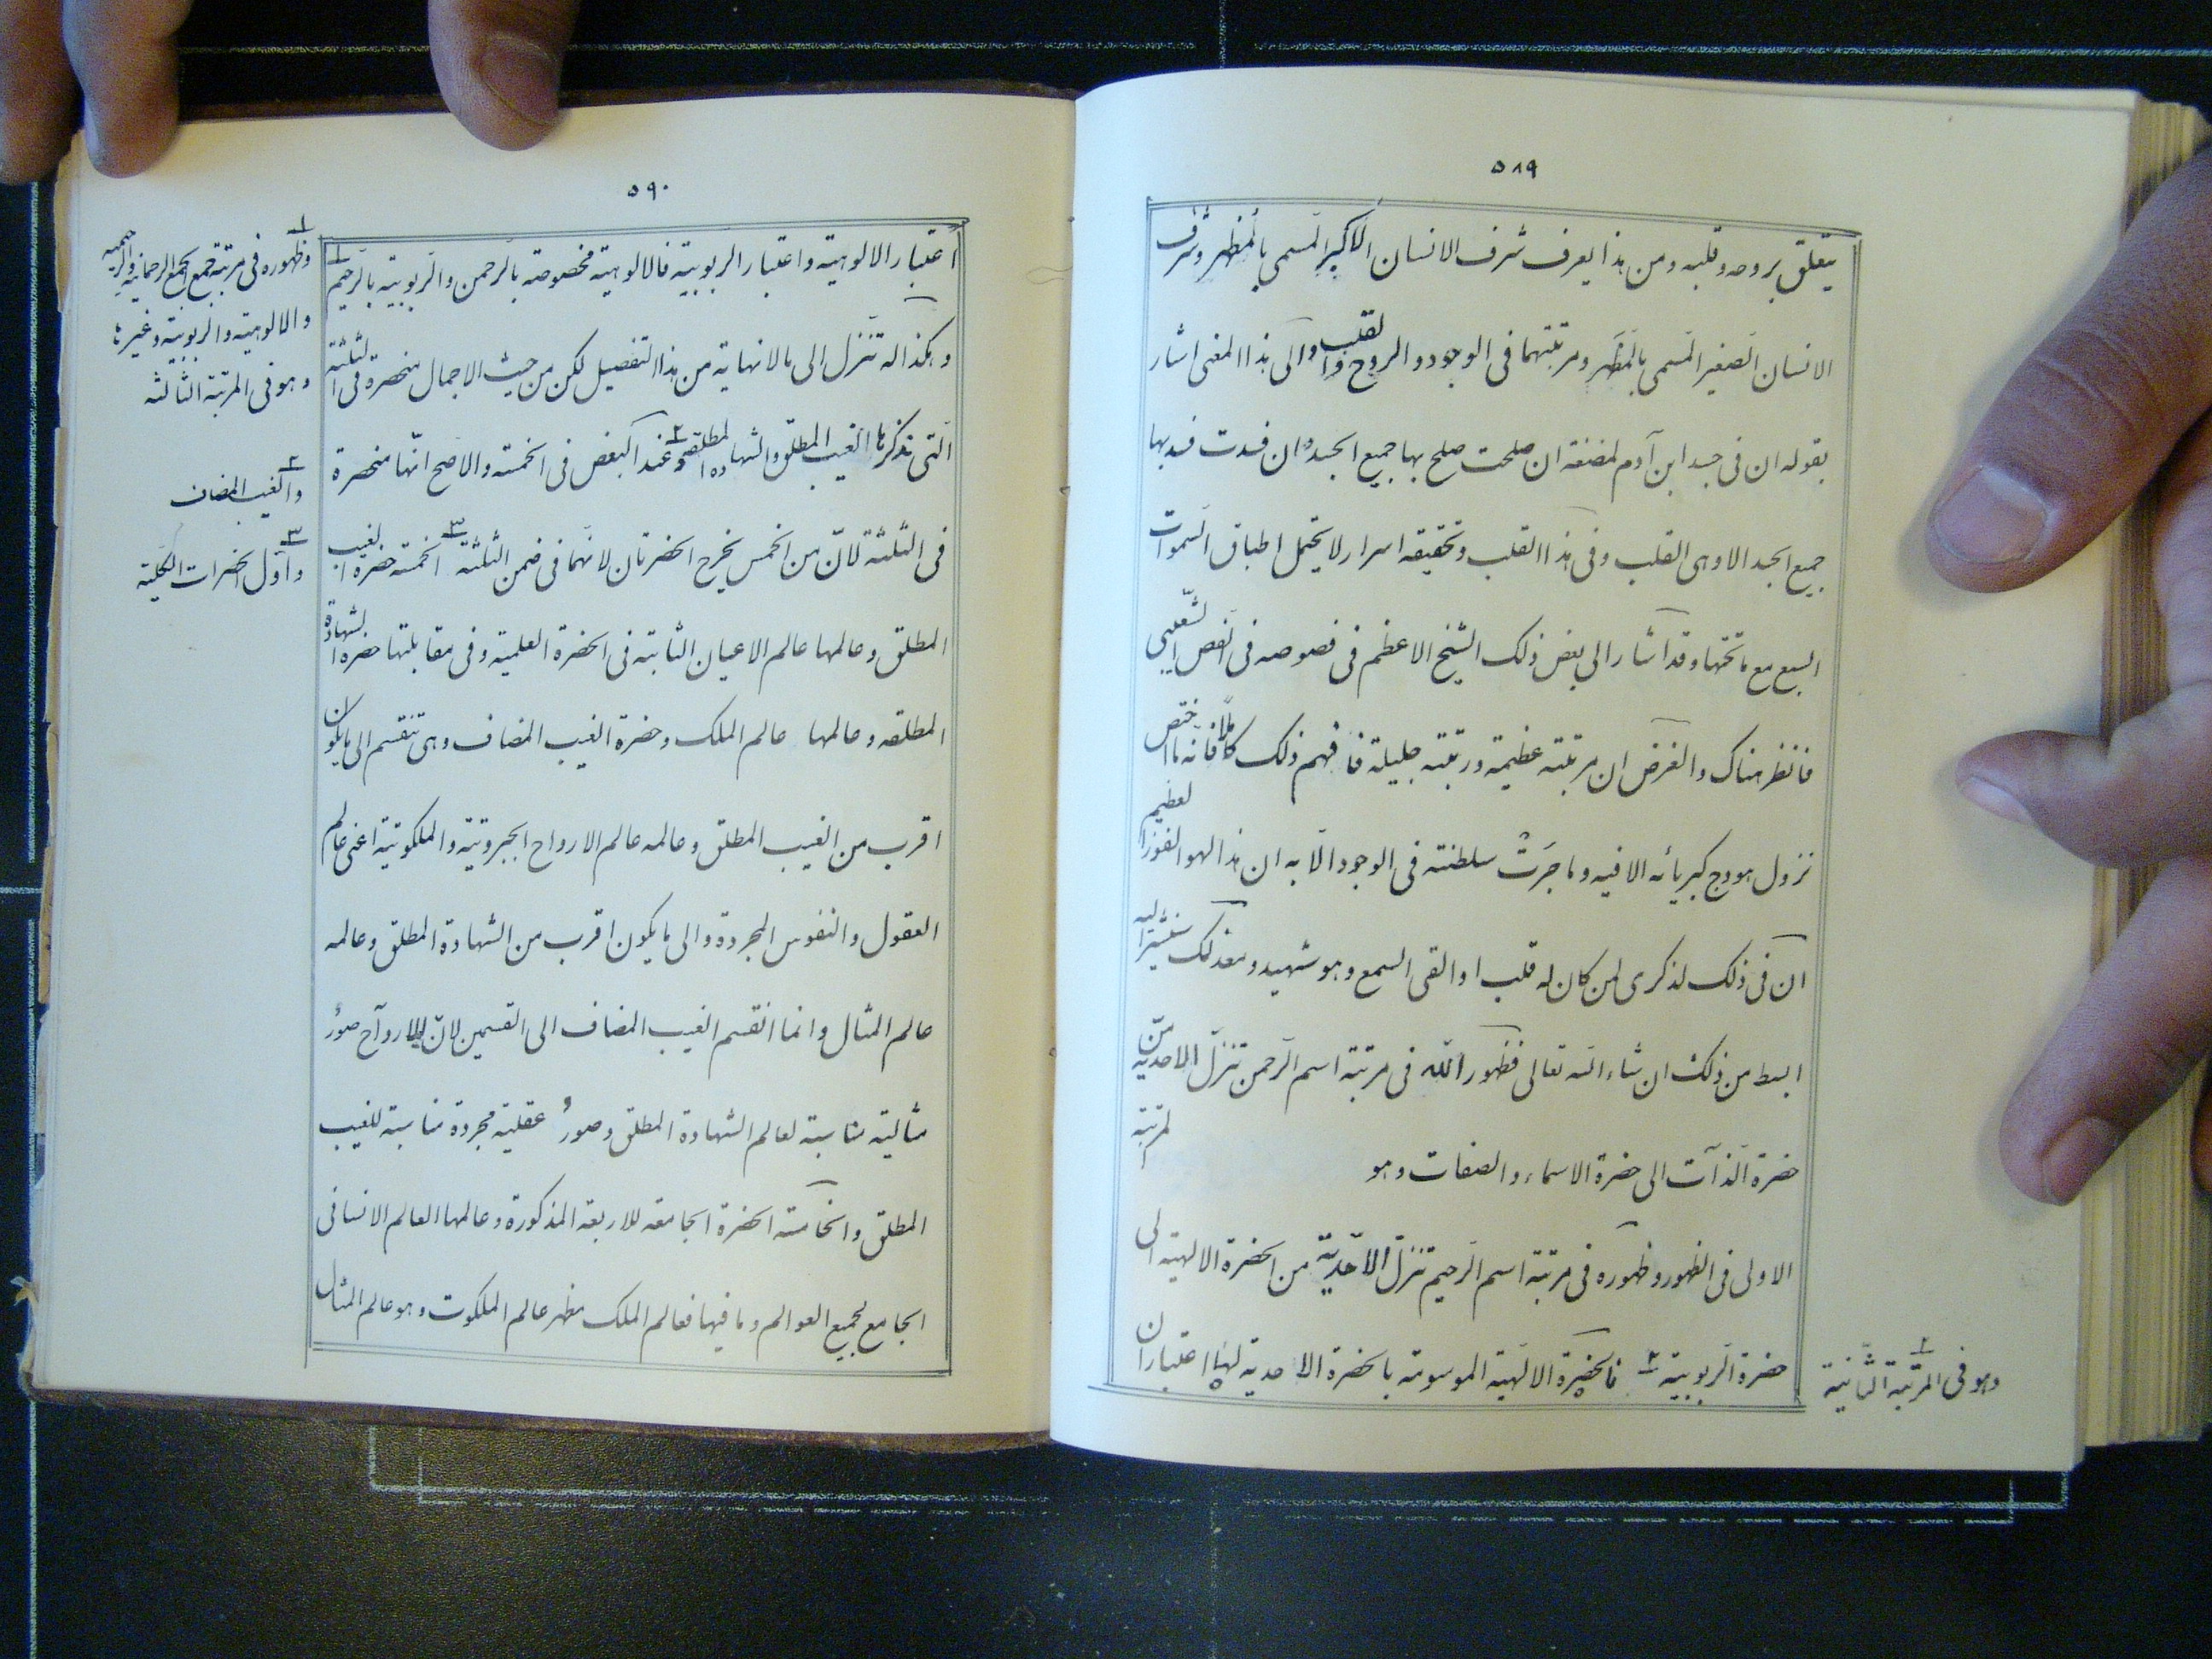 ٥٨٩
يتعلق بروحه وقلبه ومن هذا يعرف شرف الانسان الكبير المسمى بالمظهر وشرف
الانسان الصغير المسمى بالمظهر ومرتبتهما فى الوجود والروح والقلب والى هذا المعنى اشار
بقوله ان فى جسد ابن آدم لمضغة ان صلحت صلح بها جميع الجسد وان فسدت فسد بها
جميع الجسد الا وهى القلب وفى هذا القلب وتحقيقه اسرار لا يحتمل اطباق السموات
السبع مع ما تحتها وقد اشار الى بعض ذلك الشيخ الاعظم فى فصوصه فى الفص الشعيبى
فانظر هناك والغرض ان مرتبته عظيمة ورتبته جليلة فافهم ذلك كلا فانه ما اختص
نزول هودج كبريائه الا فيه وما جرت سلطنته فى الوجود الا به ان هذا لهو الفوز العظيم
ان فى ذلك لذكرى لمن كان له قلب او القى السمع وهو شهيد وبعد ذلك سنشير اليه
ابسط من ذلك ان شاء الله تعالى فظهور الله فى مرتبة اسم الرحمن تنزل الاحدية من
حضرة الذات الى حضرة الاسماء والصفات وهو المرتبة
الاولى فى الظهور وظهوره فى مرتبة اسم الرحيم تنزل الاحدية من الحضرة الالهية الى
حضرة الربوبية ٢ فالحضرة الالهية الموسومة بالحضرة الاحدية لها اعتباران
٢
وهو فى المرتبة الثانية
٥٩٠
اعتبار الالوهية واعتبار الربوبية فالالوهية مخصوصة بالرحمن والربوبية بالرحيم ١
وهكذا له تنزل الى ما لا نهاية من هذا التفصيل لكن من حيث الاجمال منحصرة فى الثلثة
التى نذكرها الغيب المطلق والشهادة المطلقة ٢ وعند البعض فى الخمسة والاصح انها منحصرة
فى الثلثة لان من الخمس يخرج الحضرتان لانهما فى ضمن الثلثة ٣ الخمسة حضرة الغيب
المطلق وعالمها عالم الاعيان الثابتة فى الحضرة العلمية وفى مقابلتها حضرة الشهادة
المطلقه وعالمها عالم الملك وحضرة الغيب المضاف وهى تنقسم الى ما يكون
اقرب من الغيب المطلق وعالمه عالم الارواح الجبروتية والملكوتية اعنى عالم
العقول والنفوس المجردة والى ما يكون اقرب من الشهادة المطلق وعالمه
عالم المثال وانما انقسم الغيب المضاف الى القسمين لان للارواح صور
مثالية مناسبة لعالم الشهادة المطلق وصورُ عقلية مجردة مناسبة للغيب
المطلق والخامسة الحضرة الجامعة للاربعة المذكورة وعالمها العالم الانسانى
الجامع لجميع العوالم وما فيها فعالم الملك مظهر عالم الملكوت وهو عالم المثال
١
وظهوره فى مرتبة جمع الجمع الرحمانية والرحيمية
والالوهية والربوبية وغيرها
وهو فى المرتبة الثالثه
٢
والغيب المضاف
٣
واول الحضرات الكلية